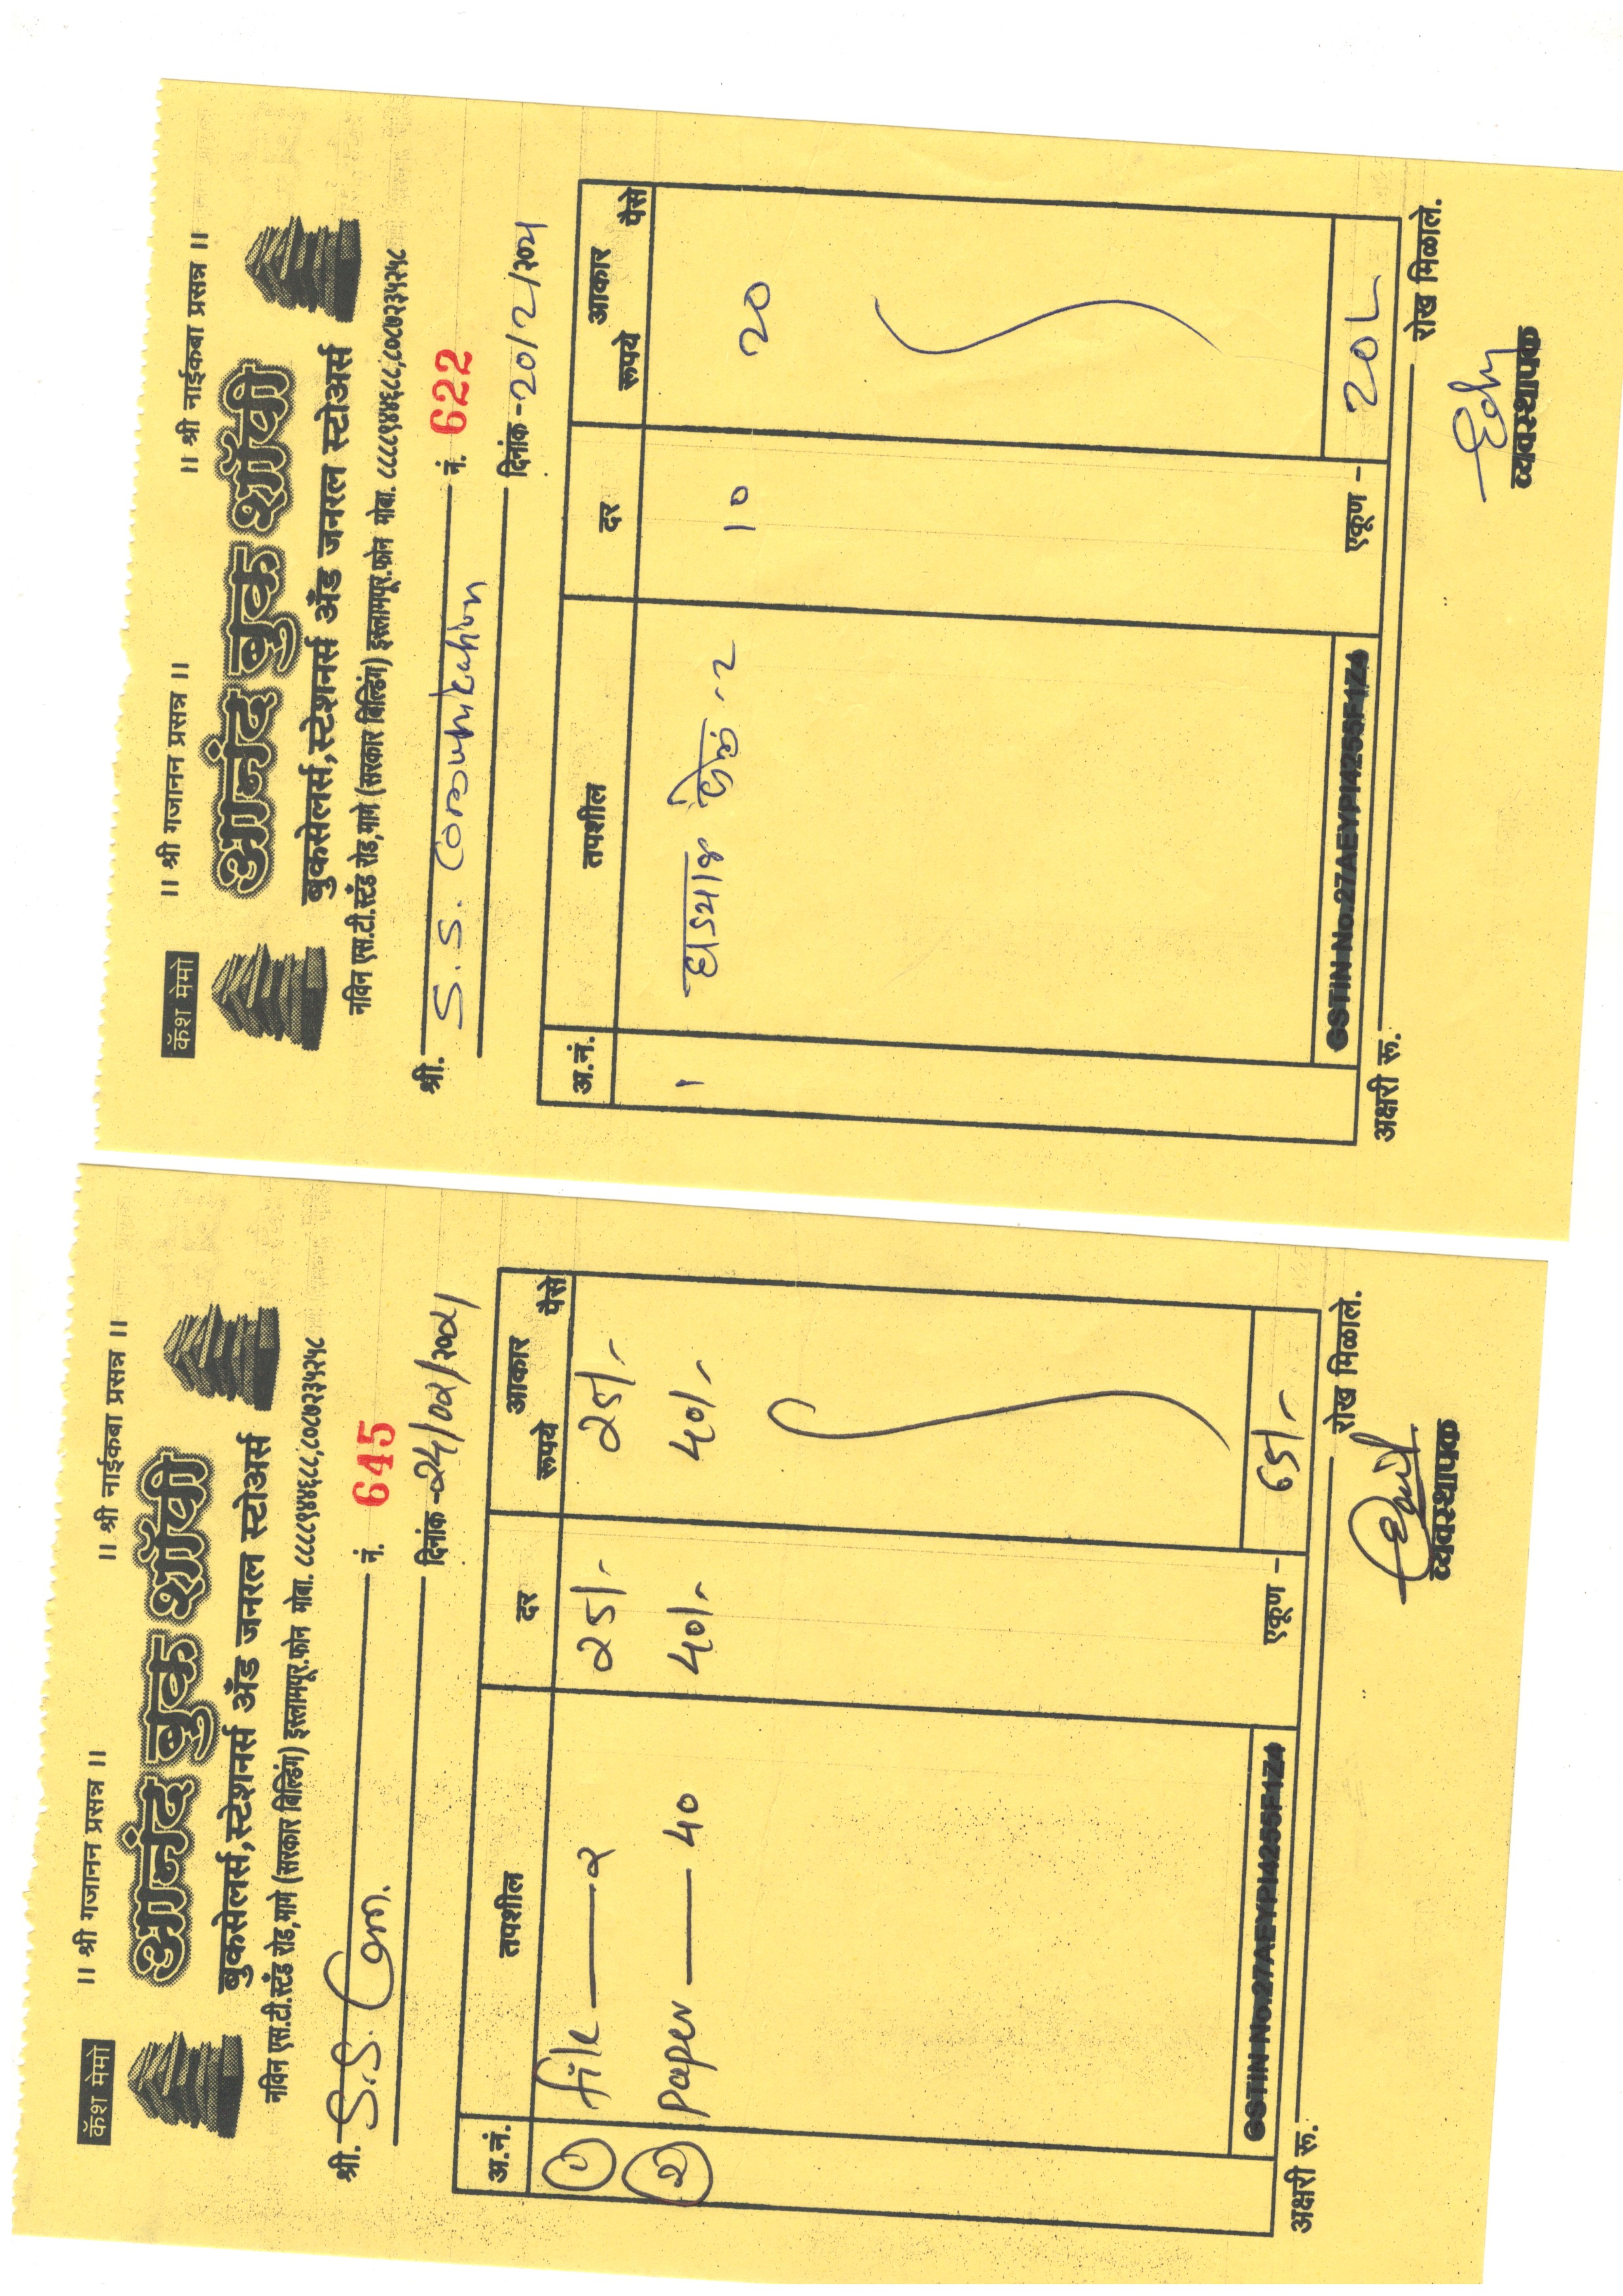 कॅश मेमो
।। श्री गजानन प्रसन्न ।।
।। श्री नाईकबा प्रसन्न ।।
आनंद बुक शॉपी
बुकसेलर्स,स्टेशनर्स अँड जनरल स्टोअर्स
नविन एस.टी.स्टँड रोड,मागे (सरकार बिल्डिंग) इस्लामपूर.फोन मोबा. ८८८८९४४६८८,८०८७२३५२५८
श्री. S.S. Com. नं. 645
दिनांक -24/02/२०21
अ.नं. तपशील दर आकार
रूपये पैसे
१ file — २ 25/- 25/-
२ paper — 40 40/- 40/-
GSTIN No.27AEYPI4255F1Z4 एकूण – 65/-
अक्षरी रू.
रोख मिळाले.
व्यवस्थापक
कॅश मेमो
।। श्री गजानन प्रसन्न ।।
।। श्री नाईकबा प्रसन्न ।।
आनंद बुक शॉपी
बुकसेलर्स,स्टेशनर्स अँड जनरल स्टोअर्स
नविन एस.टी.स्टँड रोड,मागे (सरकार बिल्डिंग) इस्लामपूर.फोन मोबा. ८८८८९४४६८८,८०८७२३५२५८
श्री. S. S. Comunication नं. 622
दिनांक -20/2/२०21
अ.नं. तपशील दर आकार
रूपये पैसे
1 - 2 10 20
GSTIN No.27AEYPI4255F1Z4 एकूण – 20/-
अक्षरी रू.
रोख मिळाले.
व्यवस्थापक